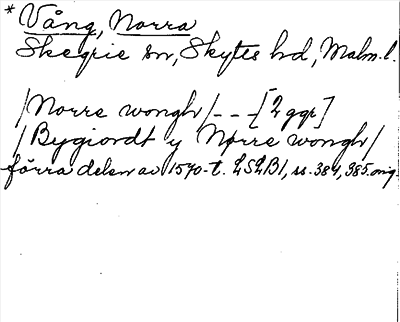 * Vång, Norra
Skegrie sn, Skytts hd, Malm. l.
/Norre wongh/ - - - [2 ggr]
/Bygiordt y Nørre wongh/
förra delen av 1570-t. LSLB1, ss. 384, 385. orig.